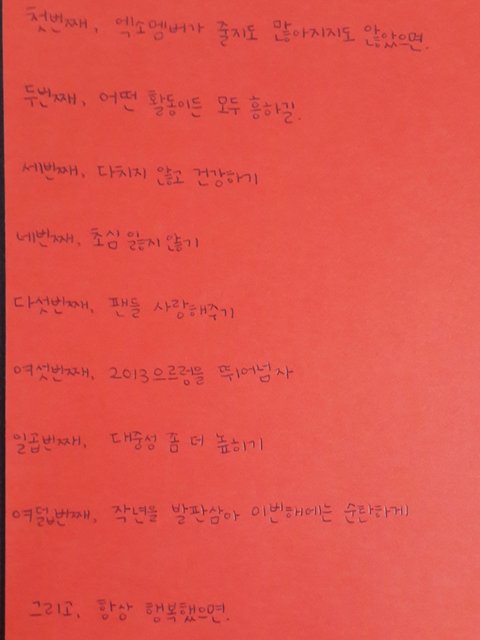 첫번째, 엑소멤버가 줄지도 많아지지도 않았으면.
두번째, 어떤 활동이든 모두 흥하길.
세번째, 다치지 않고 건강하기
네번째, 초심 잃지 않기
다섯번째, 팬들 사랑해주기
여섯번째, 2013으르렁을 뛰어넘자
일곱번째, 대중성 좀 더 높히기
여덟번째, 작년을 발판삼아 이번해에는 순탄하게
그리고, 항상 행복했으면.